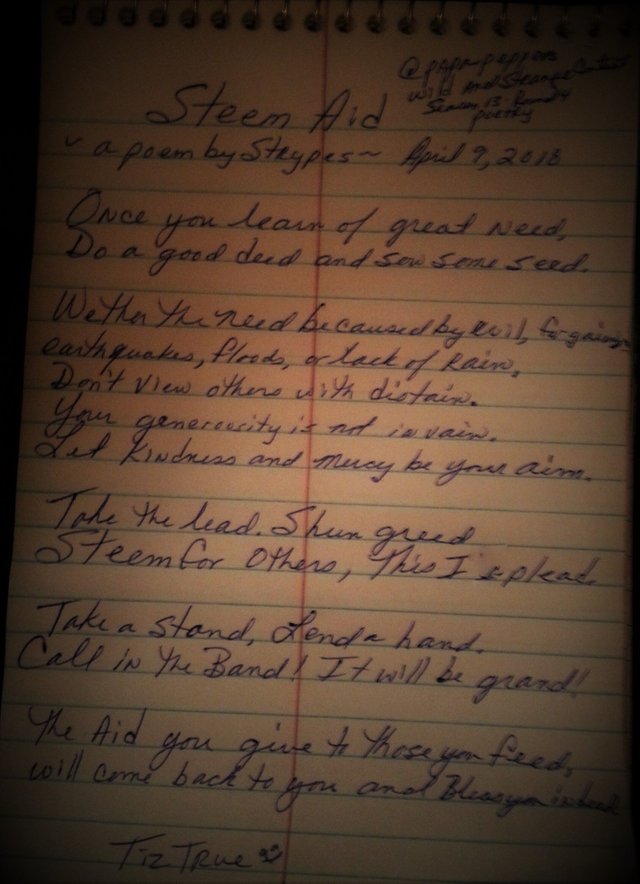 @papa-pepper's
Wild And Strange Contest
Season 13 Round 4
poetry
Steem Aid
~ a poem by Strypes ~ April 9, 2018
Once you learn of great Need,
Do a good deed and sow some seed.
Wether the need be caused by evil, for gain,
earthquakes, floods, or lack of Rain,
Don't View others with distain.
Your generousity is not in vain.
Let Kindness and mercy be your aim.
Take the lead. Shun greed
Steem for Others, This I plead.
Take a Stand, Lend a hand.
Call in The Band! It will be grand!
The Aid you give to Those you feed,
will come back to you and Bless you indeed
Tiz True